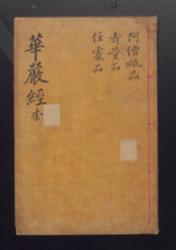 阿僧祇品
壽量品
住處品
華嚴經